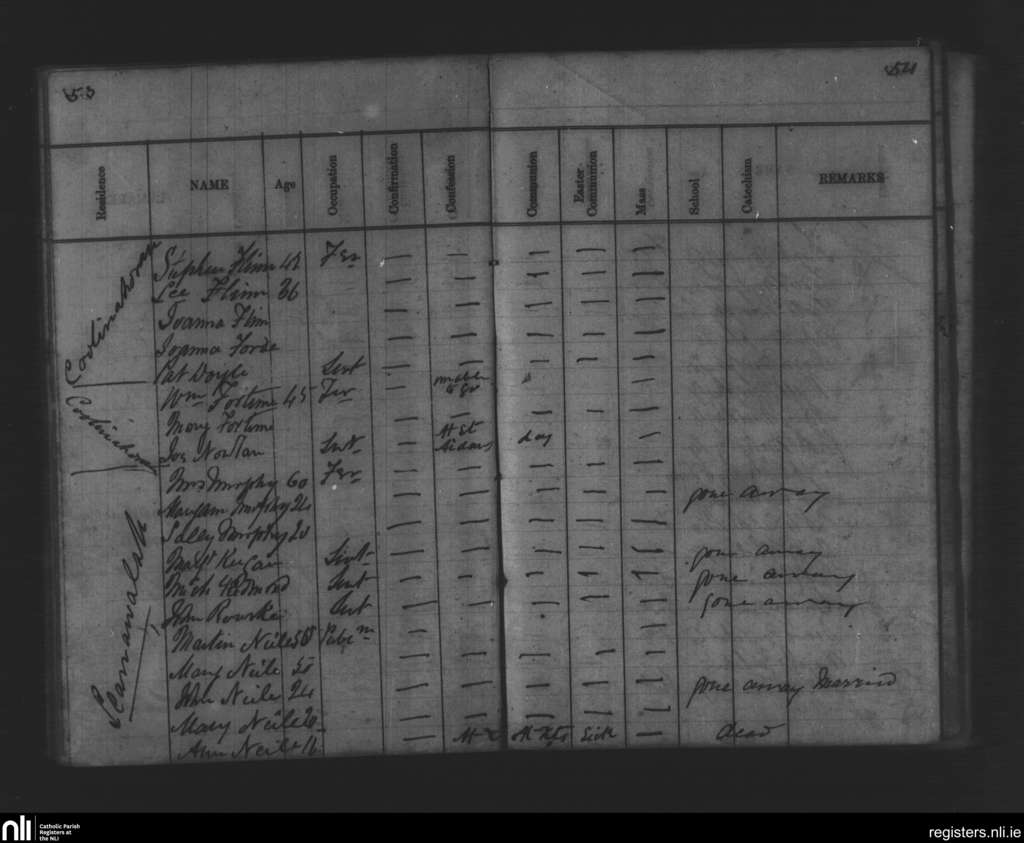 53
54
Residence NAME Age Occupation Confirmation Confession Communion Easter Communion Mass School Catechism REMARKS
Stephen Flinn 41 Fer — — — — —
Flinn 36 — — — — —
Joanna Flinn — — — — —
Joanna Forde — — — — —
Pat Doyle Svt — — — — —
Wm Fortune 45 Fer — unable to go —
Mary Fortune — — — — —
Joe Nowlan Svt — At St Aidans day —
Mrs Murphy 60 Fer — — — — —
Maryann Murphy 24 — — — — — gone away
Sally Murphy 20 — — — — —
Margt Svt — — — — — gone away
Mich Redmond Svt — — — — — gone away
John Rourke Svt — — — — — gone away
Scarawalsh
Martin Neile — —
Mary Neile 50 — — — — —
John Neile 24 — — — — — gone away Married
Mary Neile 20 — — — — —
Ann Neile — Sick — dead
nli Catholic Parish Registers at the NLI
registers.nli.ie